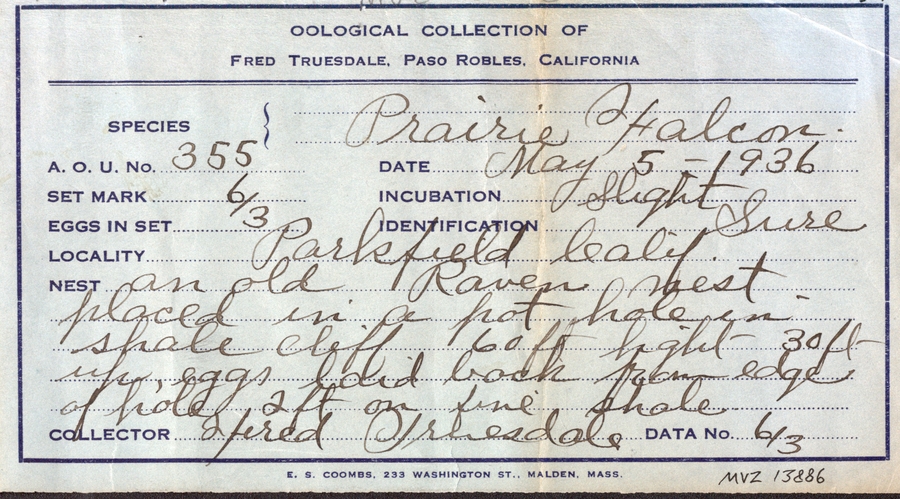 OOLOGICAL COLLECTION OF
FRED TRUESDALE, PASO ROBLES, CALIFORNIA
SPECIES Prairie Falcon.
A. O. U. No. 355 DATE May 5 - 1936
SET MARK 6/3 INCUBATION Slight
EGGS IN SET IDENTIFICATION Sure
LOCALITY Parkfield Calif.
NEST an old Raven nest
placed in a pot hole in
shale cliff 60 ft high - 30 ft
up, eggs laid back from edge
of hole, 2 ft on fine shale
COLLECTOR Fred Truesdale DATA No. 6/3
E. S. COOMBS, 233 WASHINGTON ST., MALDEN, MASS.
MVZ 13886